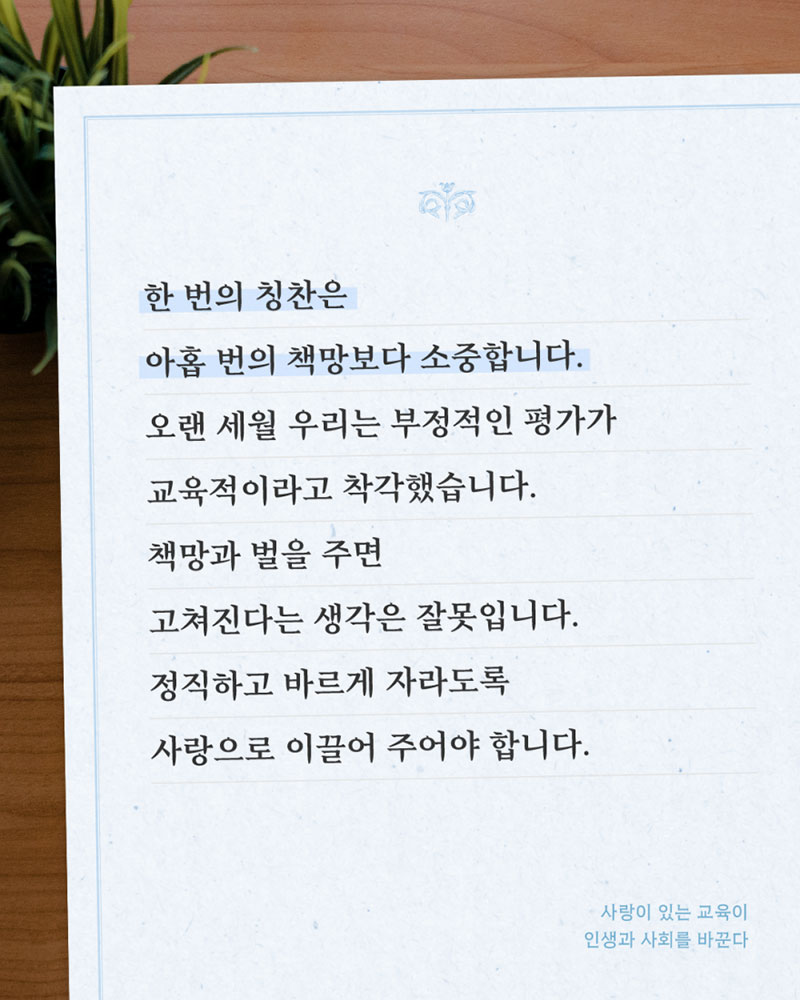 한 번의 칭찬은
아홉 번의 책망보다 소중합니다.
오랜 세월 우리는 부정적인 평가가
교육적이라고 착각했습니다.
책망과 벌을 주면
고쳐진다는 생각은 잘못입니다.
정직하고 바르게 자라도록
사랑으로 이끌어 주어야 합니다.
사랑이 있는 교육이
인생과 사회를 바꾼다